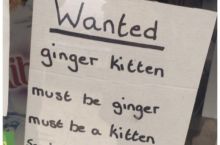 Wanted
ginger kitten
must be ginger
must be a kitten